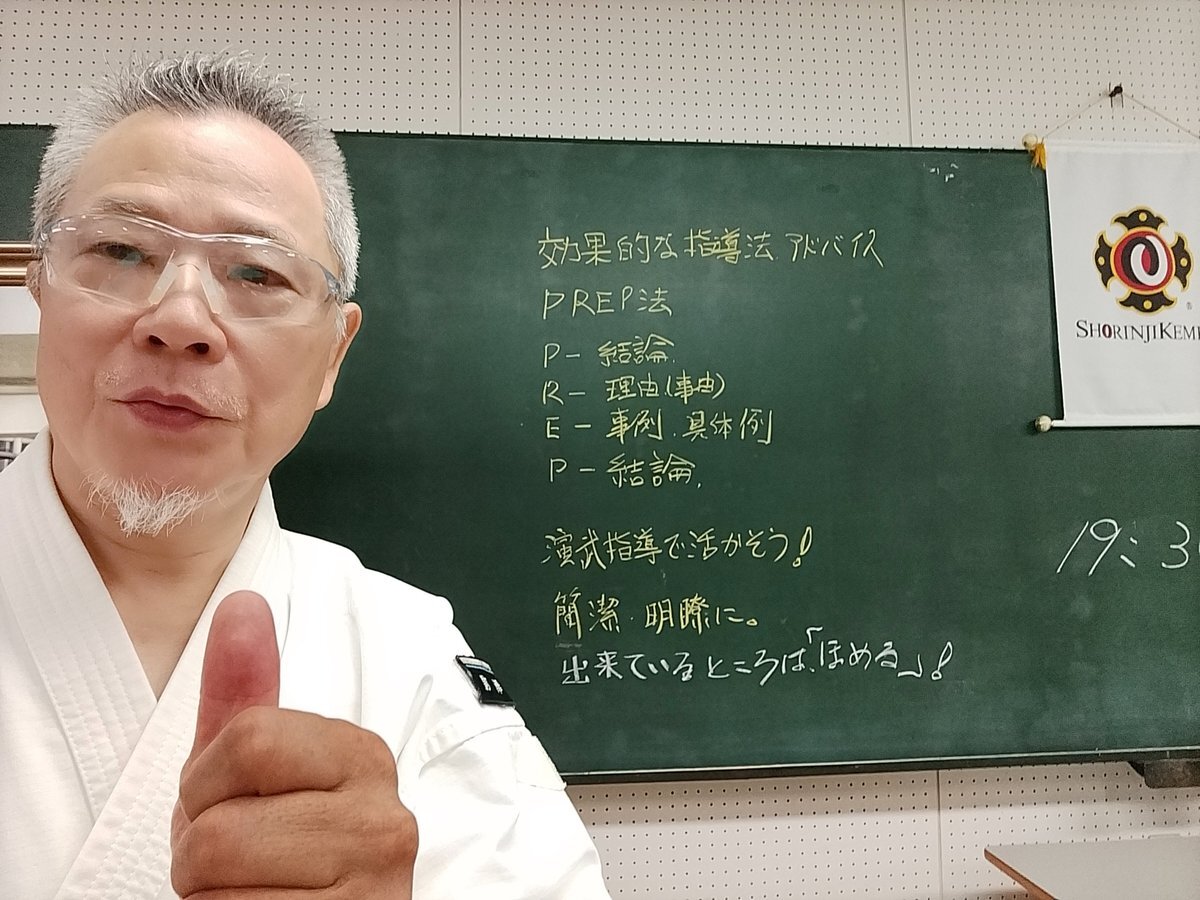 効果的な指導法 アドバイス
PREP法
P − 結論.
R − 理由(事由)
E − 事例、具体例
P − 結論.
演武指導で活かそう!
簡潔・明瞭に。
出来ているところは、「ほめる」!
SHORINJIKEM
19:3